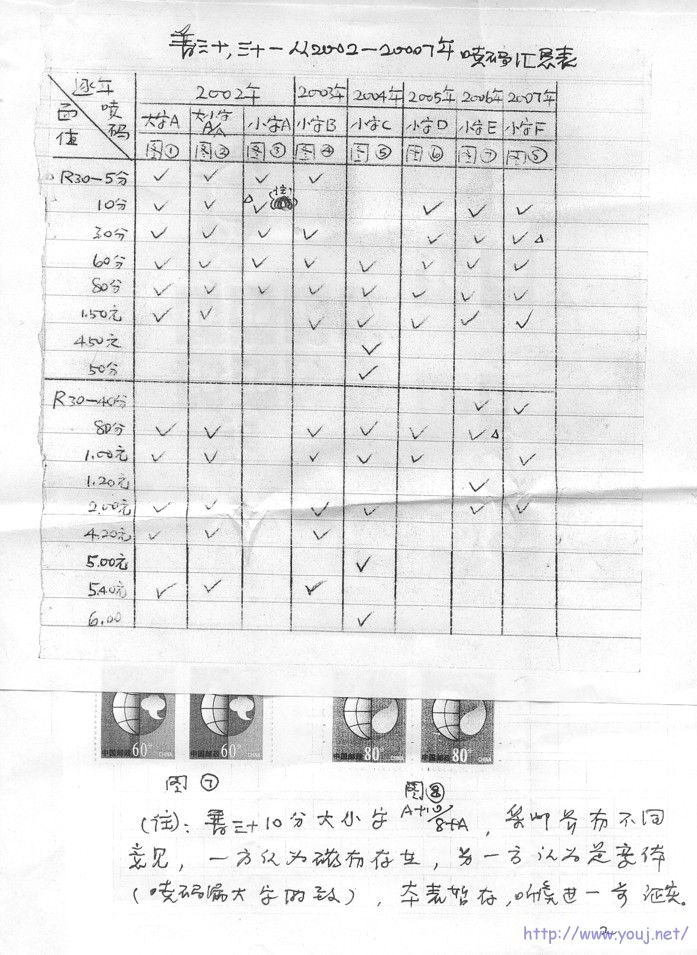 普三十,三十一从2002-20007年喷码汇总表
逐年喷码 面值 2002年 2003年 2004年 2005年 2006年 2007年
大字A 大小字A/A 小字A 小字B 小字C 小字D 小字E 小字F
图① 图② 图③ 图④ 图⑤ 图⑥ 图⑦ 图⑧
R30-5分 ✓ ✓ ✓ ✓
(注)
10分 ✓ ✓ △✓ ✓ ✓ ✓
30分 ✓ ✓ ✓ ✓ ✓ ✓ ✓△
60分 ✓ ✓ ✓ ✓ ✓ ✓ ✓ ✓
80分 ✓ ✓ ✓ ✓ ✓ ✓ ✓ ✓
1.50元 ✓ ✓ ✓ ✓ ✓ ✓ ✓
4.50元 ✓
50分 ✓
R30-40分 ✓ ✓
80分 ✓ ✓ ✓ ✓ ✓ ✓△
1.00元 ✓ ✓ ✓ ✓ ✓ ✓
1.20元 ✓
2.00元 ✓ ✓ ✓ ✓ ✓ ✓
4.20元 ✓ ✓ ✓
5.00元 ✓
5.40元 ✓ ✓ ✓
6.00 ✓
中国邮政 60分 CHINA 中国邮政 60分 CHINA 中国邮政 80分 CHINA 中国邮政 80分 CHINA
图⑦ 图⑧
(注): 普三十10分大小字 , 集邮界有不同
意见, 一方认为确有存在, 另一方认为是变体
(喷码漏大字所致), 本表暂存, 证实.
http://www.youj.net/